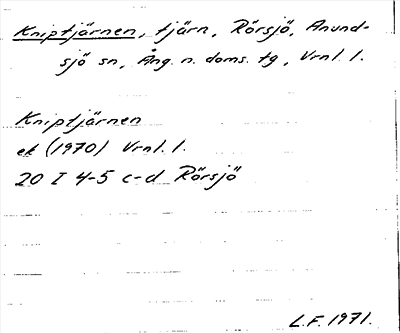 Kniptjärnen, tjärn, Rörsjö, Anund-
sjö sn, Ång. n. doms. tg, Vrnl. l.
Kniptjärnen
ek (1970) Vrnl. l.
20 I 4-5 c-d Rörsjö
L.F. 1971.